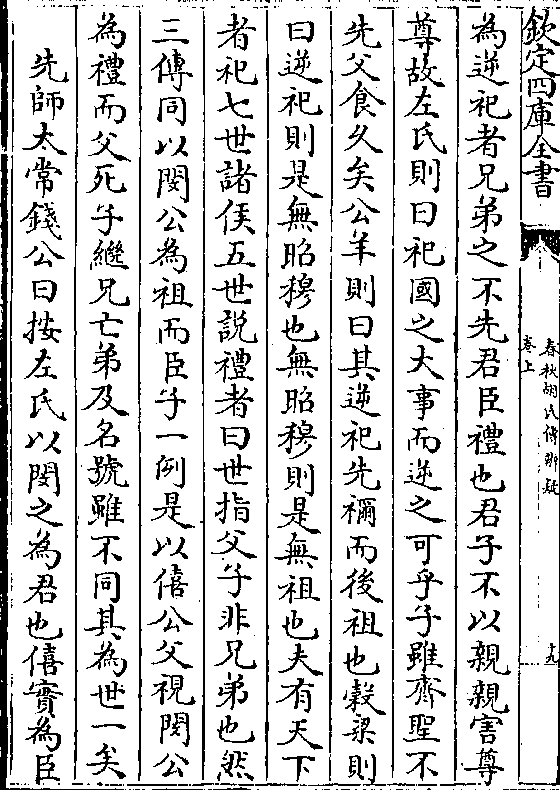 欽定四庫全書
春秋胡氏傳辨疑
卷上
十九
為逆祀者兄弟之不先君臣禮也君子不以親親害尊
尊故左氏則曰祀國之大事而逆之可乎子雖齊聖不
先父食久矣公羊則曰其逆祀先禰而後祖也糓梁則
曰逆祀則是無昭穆也無昭穆則是無祖也夫有天下
者祀七世諸侯五世說禮者曰世指父子非兄弟也然
三傳同以閔公為祖而臣子一例是以僖公父視閔公
為禮而父死子繼兄亡弟及名號雖不同其為世一矣
先師太常錢公曰按左氏以閔之為君也僖實為臣